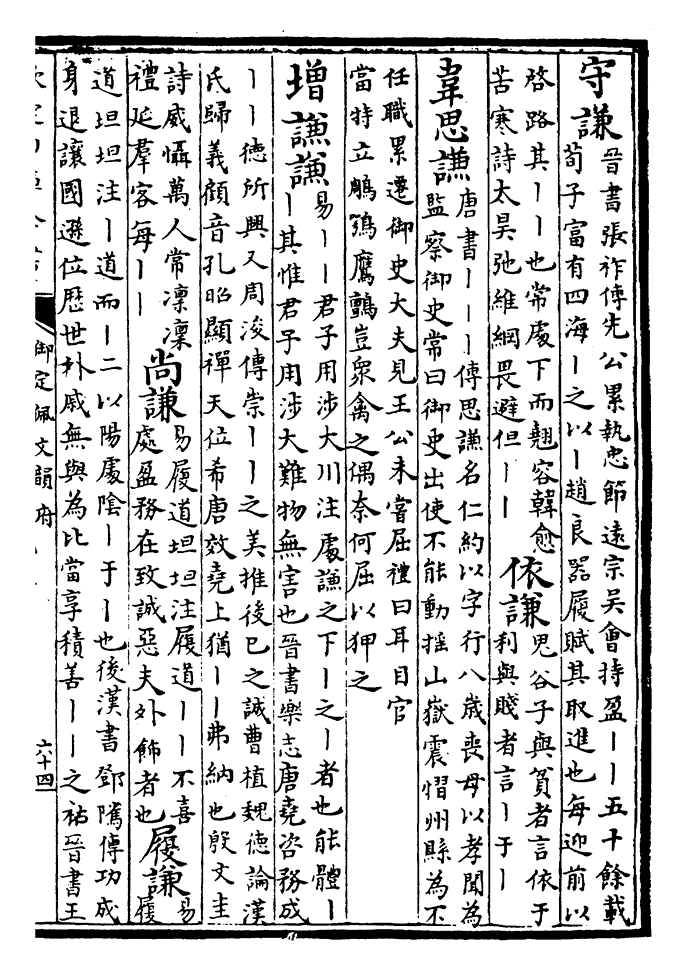 守謙 晉書張祚傳先公累執忠節遠宗吳會持盈丨丨五十餘載
荀子富有四海丨之以丨趙良器履賦其取進也每迎前以
啓路其丨丨也常處下而翹容韓愈
苦寒詩太昊弛維綱畏避但丨丨
依謙 鬼谷子與貧者言依于
利與賤者言丨于丨
韋思謙 唐書丨丨丨傳思謙名仁約以字行八歲喪母以孝聞為
監察御史常曰御史出使不能動搖山嶽震慴州縣為不
任職累遷御史大夫見王公未嘗屈禮曰耳目官
當特立鵰鶚鷹鸇豈衆禽之偶奈何屈以狎之
增謙謙 易丨丨君子用涉大川注處謙之下丨之丨者也能體丨
丨其惟君子用涉大難物無害也晉書樂志唐堯咨務成
丨丨德所興又周浚傳崇丨丨之美推後已之誠曹植魏德論漢
氏歸義顧音孔昭顯禪天位希唐效堯上猶丨丨弗納也殷文圭
詩威懾萬人常凜凜
禮延羣容每丨丨
尚謙 易履道坦坦注履道丨丨不喜
處盈務在致誠惡夫外飾者也
履謙 易
履
道坦坦注丨道而丨二以陽處陰丨于丨也後漢書鄧隲傳功成
身退讓國遜位歷世外戚無與為比當享積善丨丨之祐晉書王
御定佩文韻府
六十四